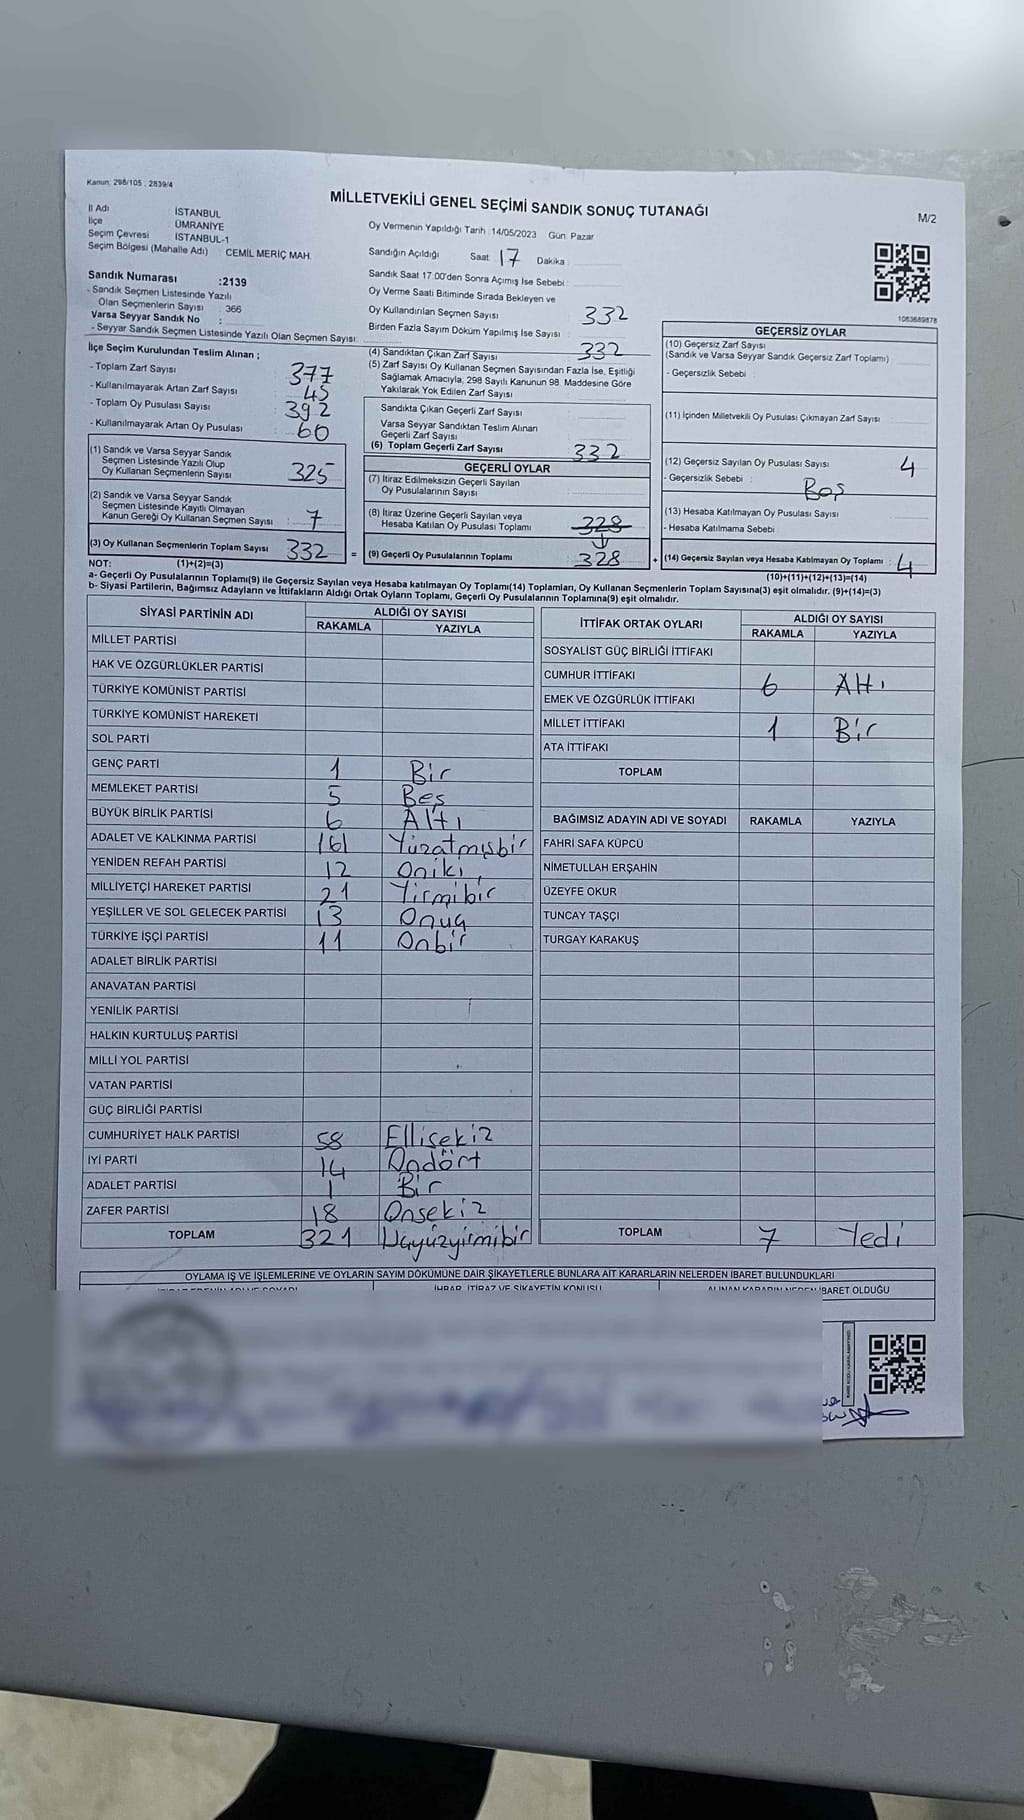 Kanun: 298/105 , 2839/4
MİLLETVEKİLİ GENEL SEÇİMİ SANDIK SONUÇ TUTANAĞI
M/2
İl Adı İSTANBUL
İlçe ÜMRANİYE
Seçim Çevresi İSTANBUL-1
Seçim Bölgesi (Mahalle Adı) CEMİL MERİÇ MAH.
Oy Vermenin Yapıldığı Tarih :14/05/2023 Gün: Pazar
Sandığın Açıldığı Saat 17 Dakika :
Sandık Saat 17:00'den Sonra Açımış İse Sebebi :
Oy Verme Saati Bitiminde Sırada Bekleyen ve
Oy Kullandırılan Seçmen Sayısı 332
Birden Fazla Sayım Döküm Yapılmış İse Sayısı :
Sandık Numarası :2139
- Sandık Seçmen Listesinde Yazılı
Olan Seçmenlerin Sayısı : 366
Varsa Seyyar Sandık No :
- Seyyar Sandık Seçmen Listesinde Yazılı Olan Seçmen Sayısı:
1083689878
İlçe Seçim Kurulundan Teslim Alınan ;
- Toplam Zarf Sayısı 377
- Kullanılmayarak Artan Zarf Sayısı 45
- Toplam Oy Pusulası Sayısı 392
- Kullanılmayarak Artan Oy Pusulası 60
(1) Sandık ve Varsa Seyyar Sandık
Seçmen Listesinde Yazılı Olup
Oy Kullanan Seçmenlerin Sayısı 325
(2) Sandık ve Varsa Seyyar Sandık
Seçmen Listesinde Kayıtlı Olmayan
Kanun Gereği Oy Kullanan Seçmen Sayısı : 7
(3) Oy Kullanan Seçmenlerin Toplam Sayısı 332 =
(1)+(2)=(3)
(4) Sandıktan Çıkan Zarf Sayısı 332
(5) Zarf Sayısı Oy Kullanan Seçmen Sayısından Fazla İse, Eşitliği
Sağlamak Amacıyla, 298 Sayılı Kanunun 98. Maddesine Göre
Yakılarak Yok Edilen Zarf Sayısı
Sandıkta Çıkan Geçerli Zarf Sayısı
Varsa Seyyar Sandıktan Teslim Alınan
Geçerli Zarf Sayısı
(6) Toplam Geçerli Zarf Sayısı 332
GEÇERLİ OYLAR
(7) İtiraz Edilmeksizin Geçerli Sayılan
Oy Pusulalarının Sayısı
(8) İtiraz Üzerine Geçerli Sayılan veya
Hesaba Katılan Oy Pusulası Toplamı 328
(9) Geçerli Oy Pusulalarının Toplamı : 328 +
GEÇERSİZ OYLAR
(10) Geçersiz Zarf Sayısı
(Sandık ve Varsa Seyyar Sandık Geçersiz Zarf Toplamı)
- Geçersizlik Sebebi :
(11) İçinden Milletvekili Oy Pusulası Çıkmayan Zarf Sayısı :
(12) Geçersiz Sayılan Oy Pusulası Sayısı : 4
- Geçersizlik Sebebi : Boş
(13) Hesaba Katılmayan Oy Pusulası Sayısı :
- Hesaba Katılmama Sebebi :
(14) Geçersiz Sayılan veya Hesaba Katılmayan Oy Toplamı : 4
(10)+(11)+(12)+(13)=(14)
NOT:
a- Geçerli Oy Pusulalarının Toplamı(9) ile Geçersiz Sayılan veya Hesaba katılmayan Oy Toplamı(14) Toplamları, Oy Kullanan Seçmenlerin Toplam Sayısına(3) eşit olmalıdır. (9)+(14)=(3)
b- Siyasi Partilerin, Bağımsız Adayların ve İttifakların Aldığı Ortak Oyların Toplamı, Geçerli Oy Pusulalarının Toplamına(9) eşit olmalıdır.
SİYASİ PARTİNİN ADI ALDIĞI OY SAYISI
RAKAMLA YAZIYLA
MİLLET PARTİSİ
HAK VE ÖZGÜRLÜKLER PARTİSİ
TÜRKİYE KOMÜNİST PARTİSİ
TÜRKİYE KOMÜNİST HAREKETİ
SOL PARTİ
GENÇ PARTİ 1 Bir
MEMLEKET PARTİSİ 5 Beş
BÜYÜK BİRLİK PARTİSİ 6 Altı
ADALET VE KALKINMA PARTİSİ 161 Yüzatmışbir
YENİDEN REFAH PARTİSİ 12 Oniki
MİLLİYETÇİ HAREKET PARTİSİ 21 Yirmibir
YEŞİLLER VE SOL GELECEK PARTİSİ 13 Onuç
TÜRKİYE İŞÇİ PARTİSİ 11 Onbir
ADALET BİRLİK PARTİSİ
ANAVATAN PARTİSİ
YENİLİK PARTİSİ
HALKIN KURTULUŞ PARTİSİ
MİLLİ YOL PARTİSİ
VATAN PARTİSİ
GÜÇ BİRLİĞİ PARTİSİ
CUMHURİYET HALK PARTİSİ 58 Ellisekiz
İYİ PARTİ 14 Ondört
ADALET PARTİSİ 1 Bir
ZAFER PARTİSİ 18 Onsekiz
TOPLAM 321 Üçyüzyirmibir
İTTİFAK ORTAK OYLARI ALDIĞI OY SAYISI
RAKAMLA YAZIYLA
SOSYALİST GÜÇ BİRLİĞİ İTTİFAKI
CUMHUR İTTİFAKI 6 Altı
EMEK VE ÖZGÜRLÜK İTTİFAKI
MİLLET İTTİFAKI 1 Bir
ATA İTTİFAKI
TOPLAM
BAĞIMSIZ ADAYIN ADI VE SOYADI RAKAMLA YAZIYLA
FAHRİ SAFA KÜPCÜ
NİMETULLAH ERŞAHİN
ÜZEYFE OKUR
TUNCAY TAŞÇI
TURGAY KARAKUŞ
TOPLAM 7 Yedi
OYLAMA İŞ VE İŞLEMLERİNE VE OYLARIN SAYIM DÖKÜMÜNE DAİR ŞİKAYETLERLE BUNLARA AİT KARARLARIN NELERDEN İBARET BULUNDUKLARI
İHBAR, İTİRAZ VE ŞİKAYETİN KONUSU
ALINAN KARARIN NEDEN İBARET OLDUĞU